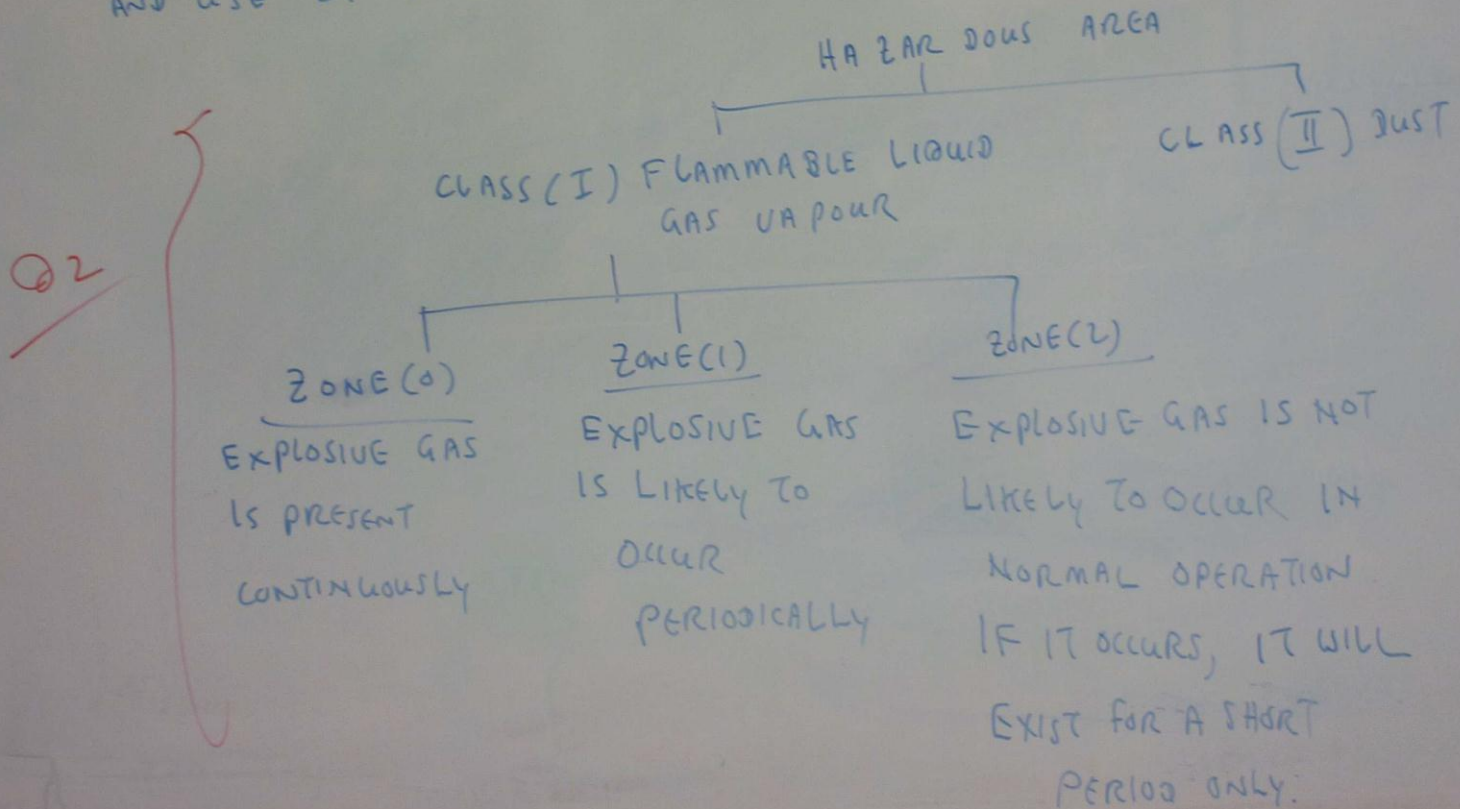 AND USE
HAZARDOUS AREA
CLASS (I) FLAMMABLE LIQUID
GAS VAPOUR
CLASS (II) DUST
Q2
ZONE (0)
EXPLOSIVE GAS
IS PRESENT
CONTINUOUSLY
ZONE (1)
EXPLOSIVE GAS
IS LIKELY TO
OCCUR
PERIODICALLY
ZONE (2)
EXPLOSIVE GAS IS NOT
LIKELY TO OCCUR IN
NORMAL OPERATION
IF IT OCCURS, IT WILL
EXIST FOR A SHORT
PERIOD ONLY.